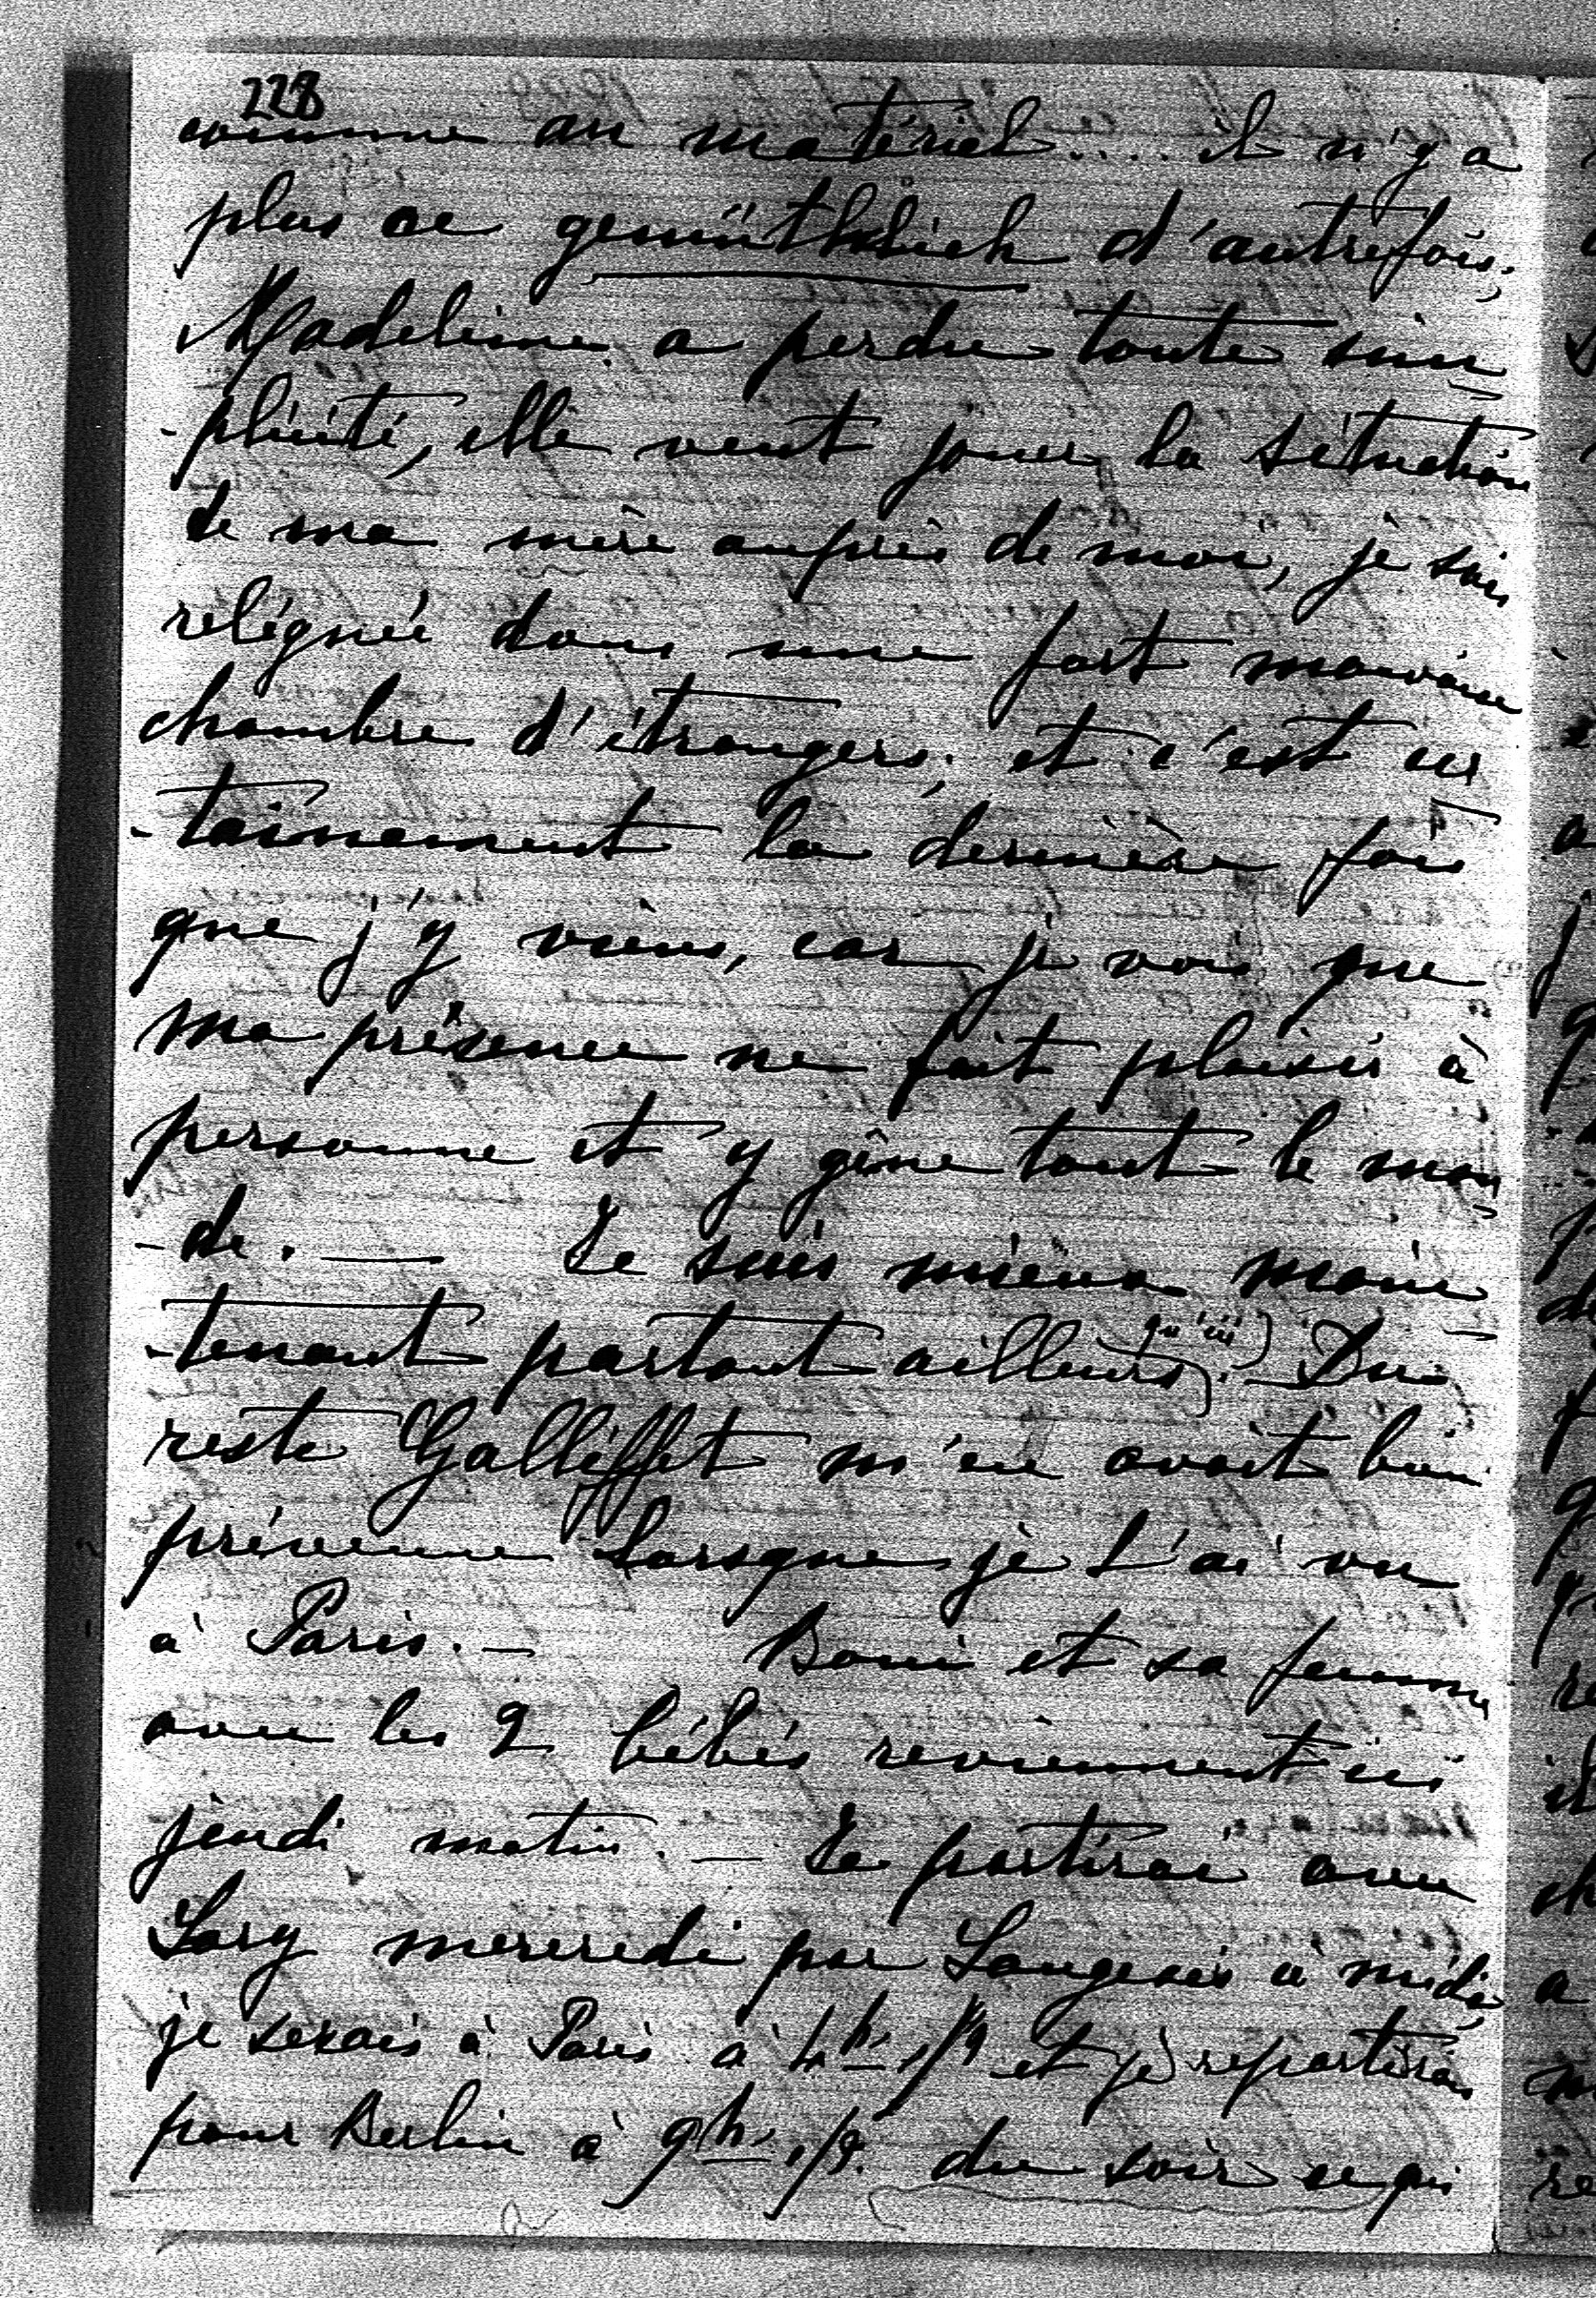 228
comme au matériel.... il n'y a
plus ce gemüthlich d'autrefois.
Madeleine a perdu toute sim
-plicité, elle veut jouer la situation
de ma mère auprès de moi, je suis
reléguée dans une fort mauvaise
chambre d'étrangers, et c'est cer
-tainement la dernière fois
que j'y viens, car je vois que
ma présence ne fait plaisir à
personne et y gêne tout le mon
-de. — Je suis mieux main
-tenant partout ailleurs qu'ici). Du
reste Galléffet m'en avait bien
prévenue lorsque je l'ai vu
à Paris. — Boni et sa femme
avec les 2 bébés reviennent ici
jeudi matin. — Je partirai avec
Lory mercredi par Langeais à midi,
je serais à Paris à 4h. 1/2 et je repartirai
pour Berlin à 9h. 1/2. du soir ce qui